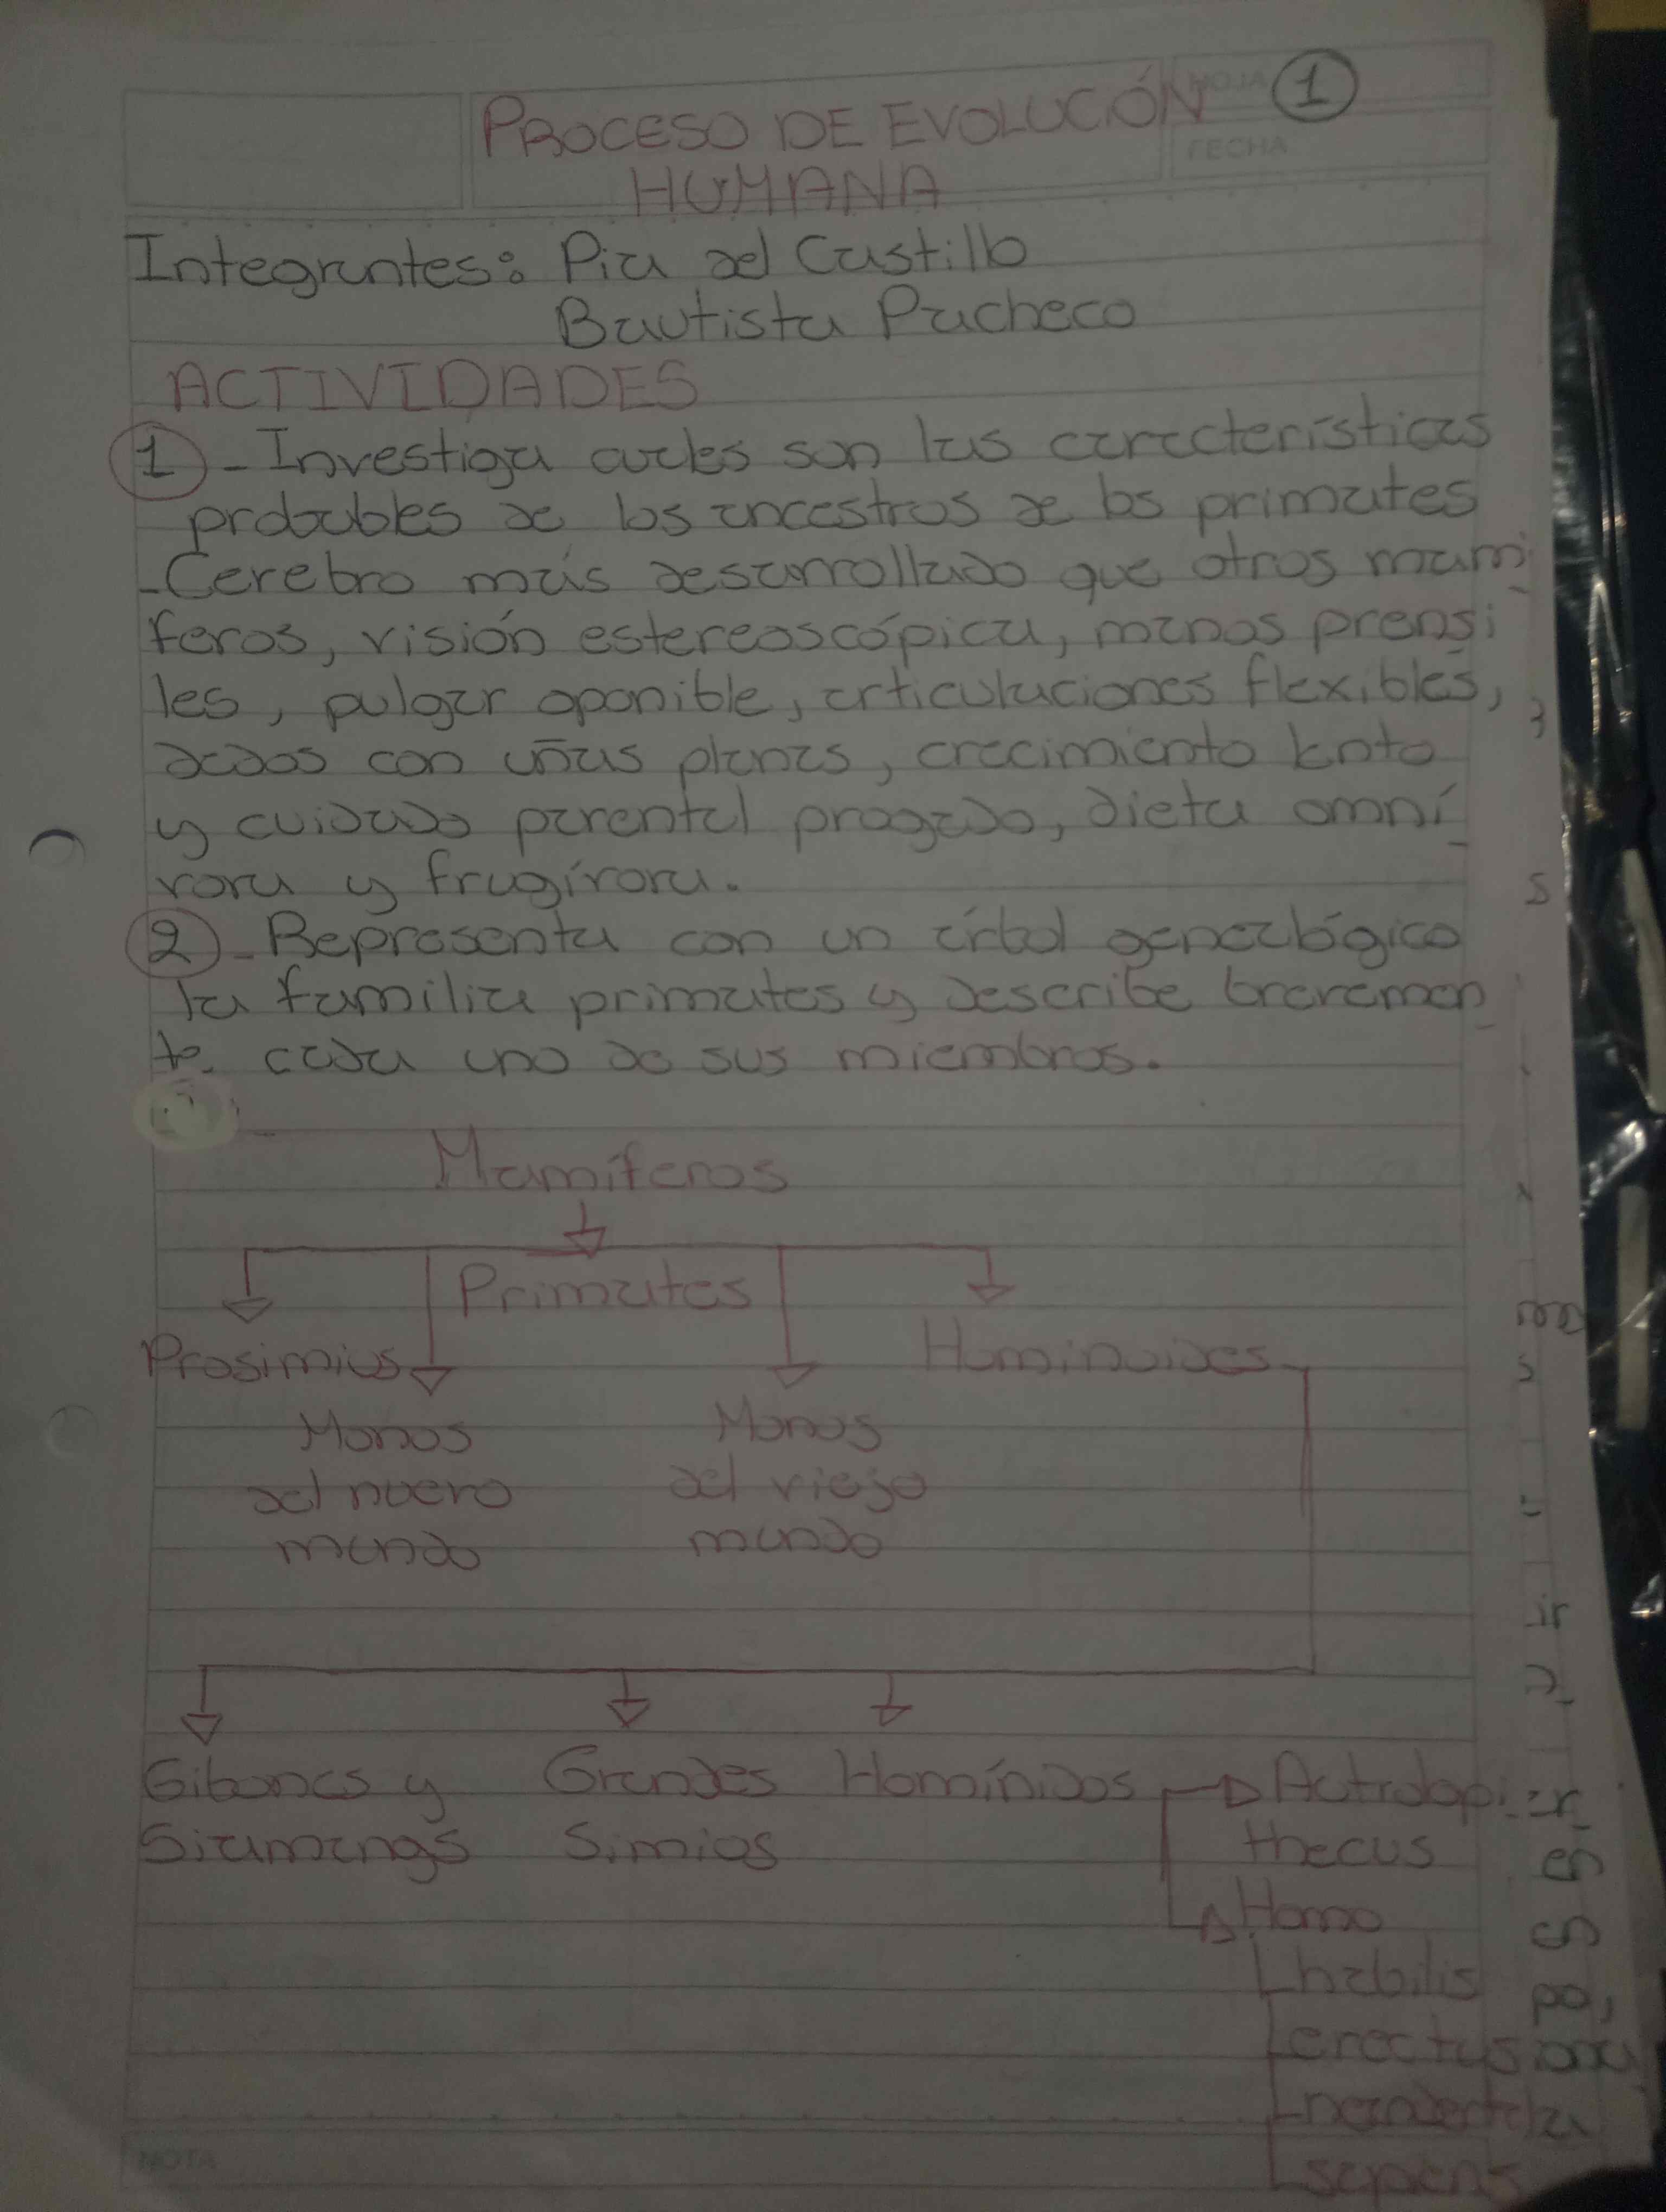 HOJA 1
PROCESO DE EVOLUCÓN
FECHA
HUMANA
Integrantes: Pia del Castillo
Bautista Pacheco
ACTIVIDADES
1 - Investiga cuales son las características
probables de los ancestros de los primates
- Cerebro más desarrollado que otros mamí
feros, visión estereoscópica, manos prensi
les, pulgar oponible, articulaciones flexibles,
dedos con uñas planas, crecimiento lento
y cuidado parental progado, dieta omní
vora y frugívora.
2 - Representa con un árbol genealógico
la familia primates y describe brevemen
te cada uno de sus miembros.
Mamíferos
Primates
Prosimius
Hominoides
Monos del nuevo mundo
Monos del viejo mundo
Gibones y Siamangs
Grandes Simios
Homínidos
Autralopi
thecus
Homo
habilis
erectus
neandertal
sapiens
NOTA